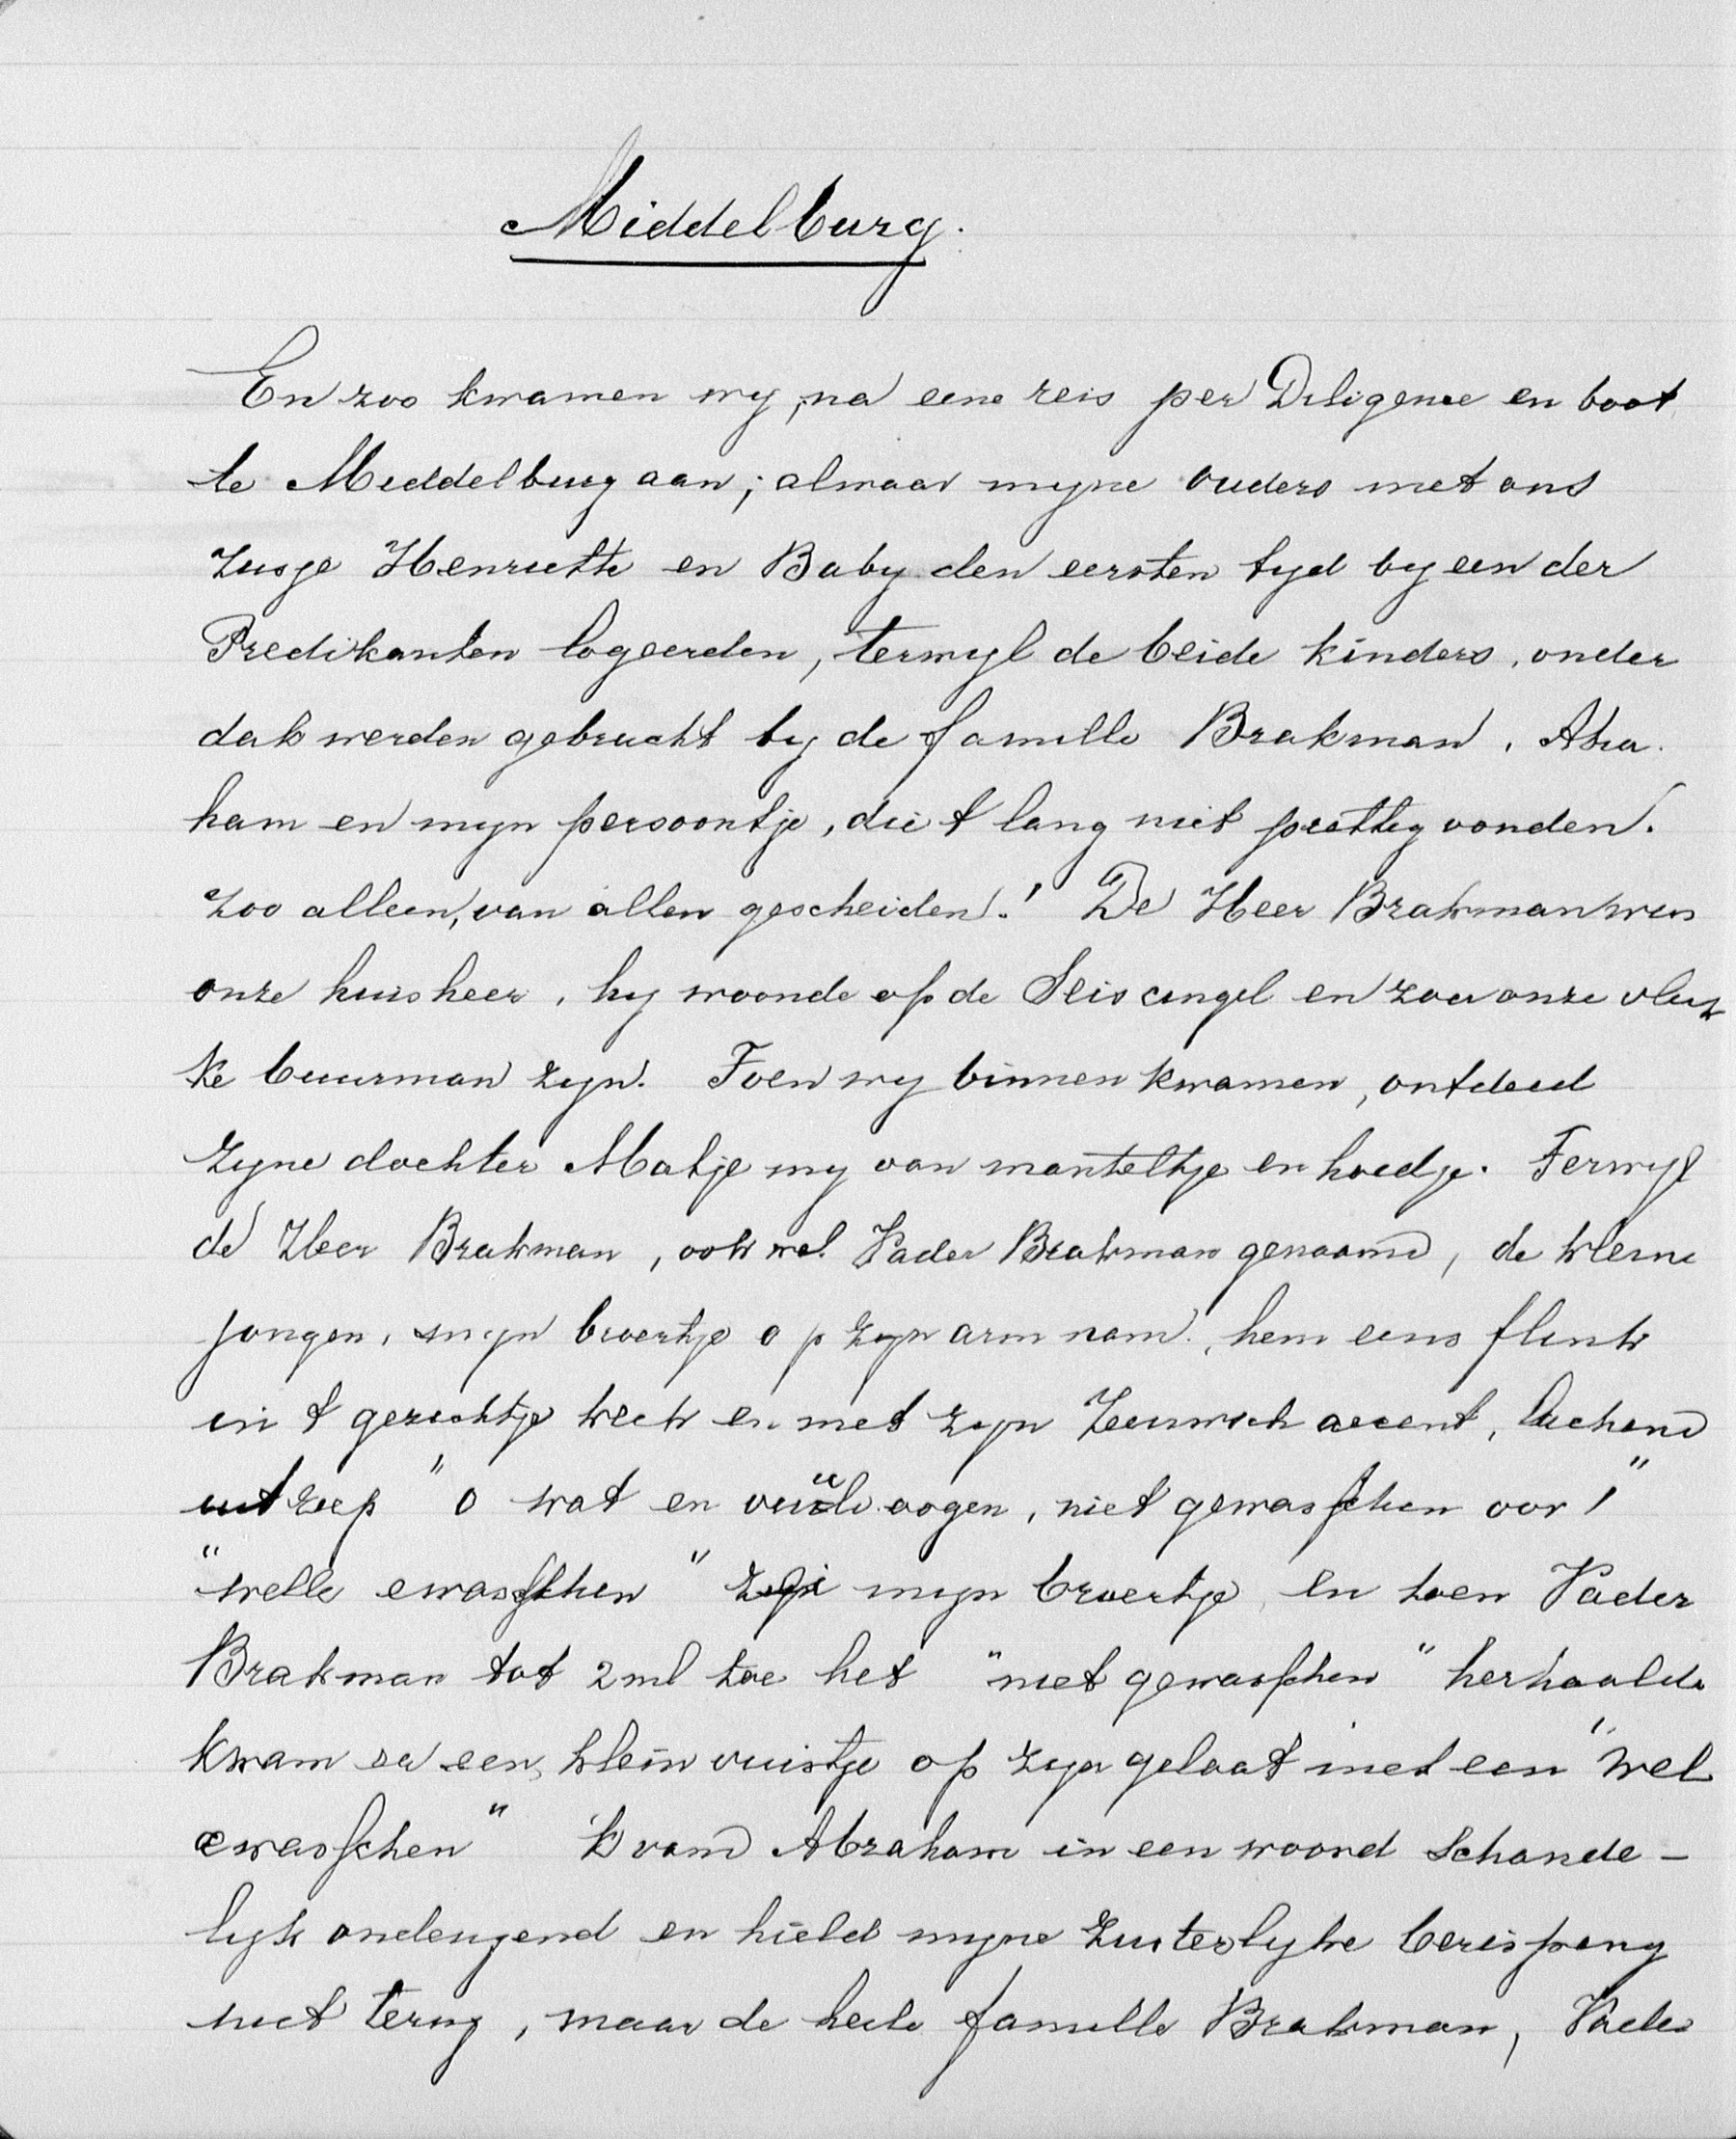 Middelburg.
En zoo kwamen wy, na eene reis per Diligence en boot
te Middelburg aan; alwaar myne ouders met ons
zusje Henriette en Baby den eersten tyd by een der
Predikanten logeerden, terwyl de beide kinders, onder
dak werden gebracht by de familie Brakman, Abra-
ham en myn persoontje, die 't lang niet prettig vonden.
Zoo alleen, van allen gescheiden! De Heer Brakman was
onze huisheer, hy woonde op de Seiscingel en zou onze vlak
ke buurman zyn. Toen wy binnen kwamen, ontdeed
zyne dochter Matje my van manteltje en hoedje. Terwyl
de Heer Brakman, ook wel Vader Brakman genaamd, de kleine
jongen, myn broertje op zyn arm nam, hem eens flink
in 't gezichtje keek en met zyn Zeeuwsch accent, lachend
uitriep "o wat en vuüle oogen, niet gewasschen oor!"
"welle ewasschen" zei myn broertje, en toen Vader
Brakman tot 2 ml toe het "niet gewasschen" herhaalde
kwam er een klein vuistje op zyn gelaat met een "wel
ewasschen" 'k vond Abraham in een woord schande-
lyk ondeugend en hield myne zusterlyke berisping
niet terug, maar de heele familie Brakman, Vader